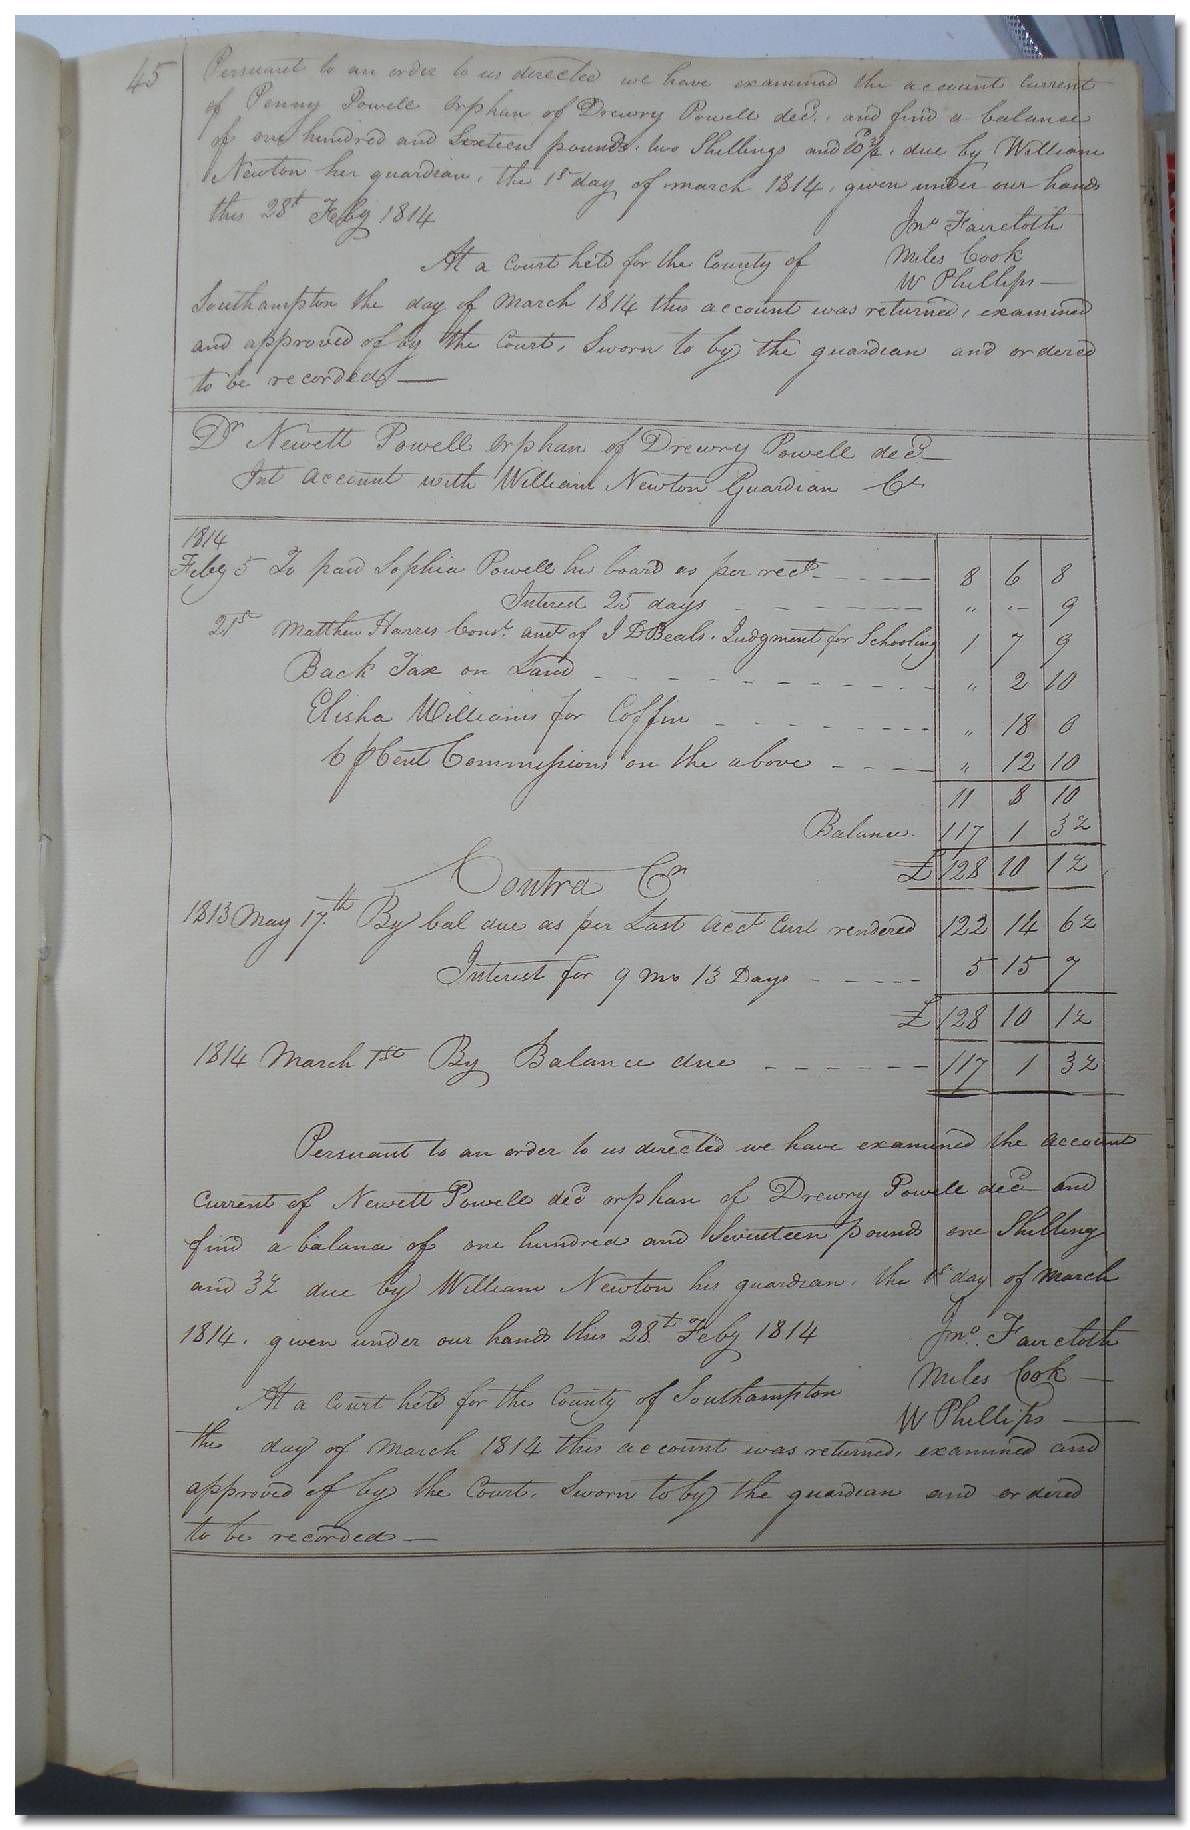 45
Persuant to an order to us directed we have examined the account Current
of Penny Powell orphan of Drewry Powell decd. and find a balance
of one hundred and Sixteen pounds two Shillings and due by William
Newton her guardian, the 1st day of march 1814, given under our hands
this 28t Feby 1814
Jno Faircloth
At a Court held for the County of
Miles Cook
W Phillips —
Southampton the day of March 1814 this account was returned, examined
and approved of by the Court, Sworn to by the guardian and ordered
to be recorded —
Dr Newett Powell orphan of Drewry Powell decd
Int account with William Newton Guardian Cr
1814
Feby 5 To paid Sophia Powell his board as per rect 8 6 8
Interest 25 days " — 9
21st Matthew Harris Const. amt of J D Beals Judgment for Schooling 1 7 9
Back Tax on Land " 2 10
Elisha Williams for Coffin " 18 0
6 pCent Commissions on the above " 12 10
11 8 10
Balance. 117 1 3½
£ 128 10 1½
Contra Cr
1813 May 17.th By bal due as per Last acct Curt rendered 122 14 6½
Interest for 9 mo 13 Days 5 15 7
£ 128 10 1½
1814 March 1st By Balance due 117 1 3½
Persuant to an order to us directed we have examined the account
Current of Newett Powell decd orphan of Drewry Powell decd and
find a balance of one hundred and Seventeen pounds one Shilling
and 3½ due by William Newton his guardian, the 1st day of March
1814. given under our hands this 28t Feby 1814
Jno. Faircloth
Miles Cook —
At a Court held for the County of Southampton
W Phillips —
the day of March 1814 this account was returned, examined and
approved of by the Court, Sworn to by the guardian and ordered
to be recorded —